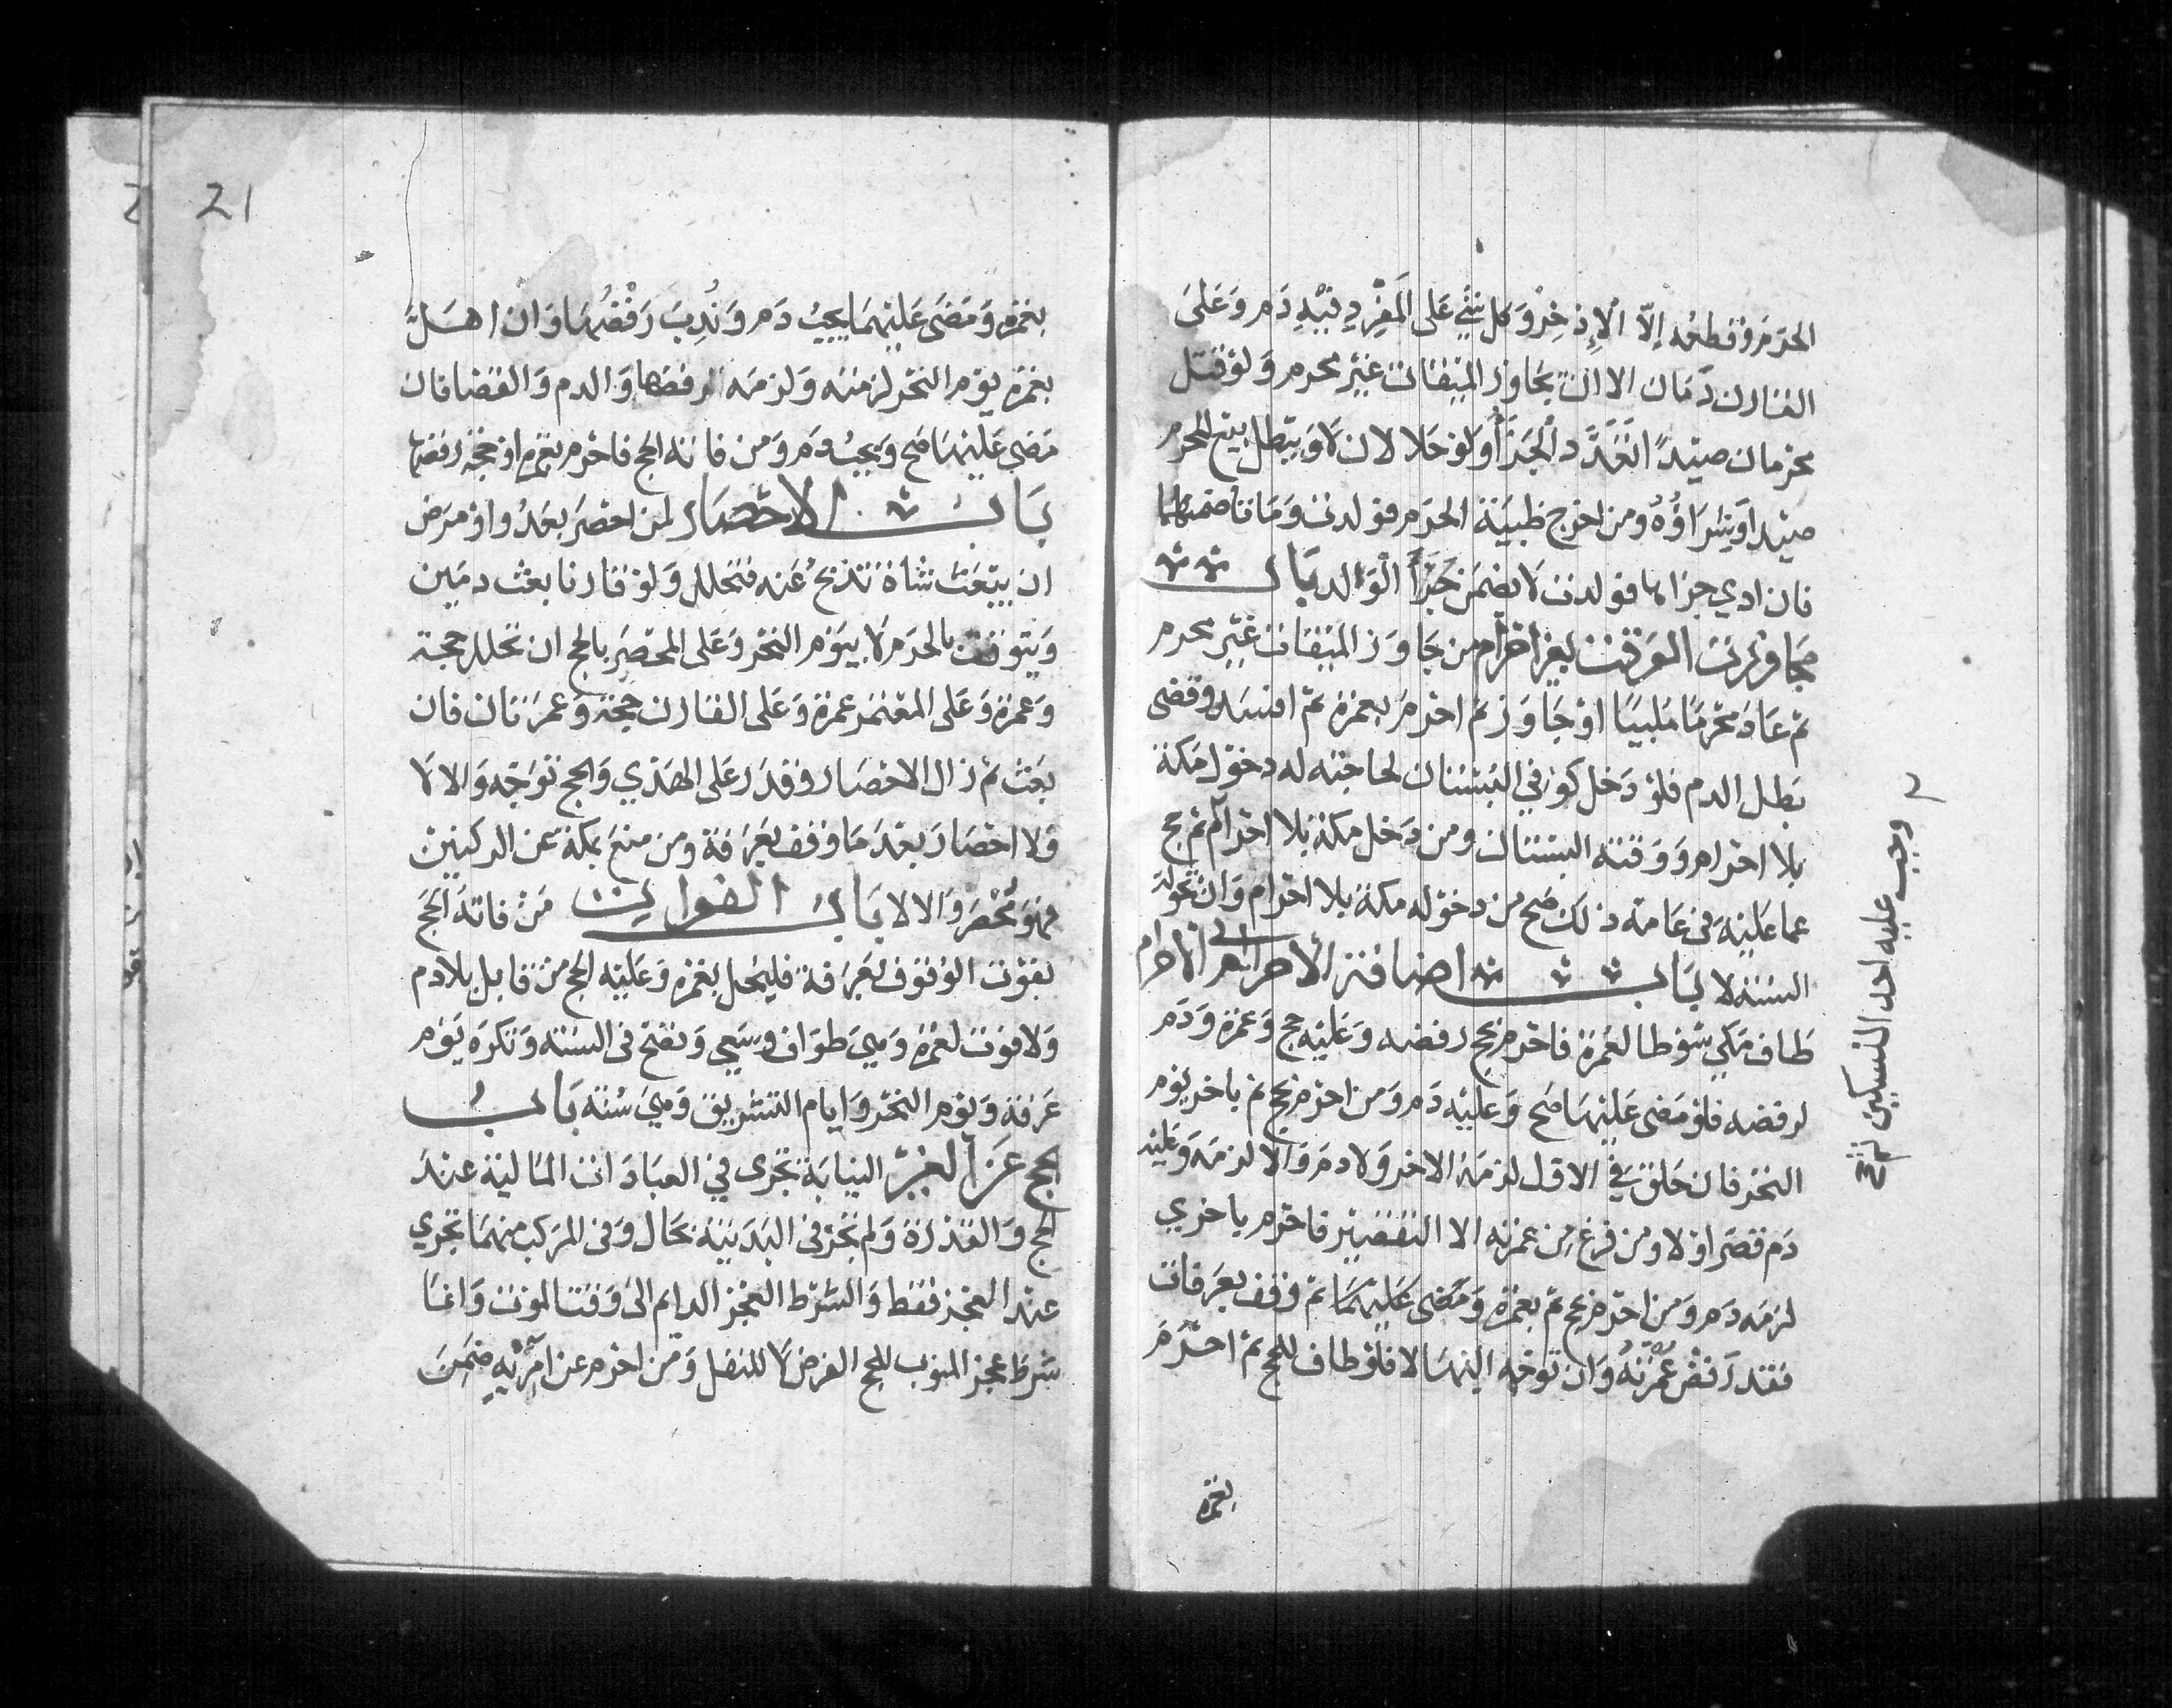 الحرم وقطعه إلا الإذخر وكل شئ على المفرد فيه دم وعلى
القارن دمان الا ان يجاوز الميقات غير محرم ولو قتل
محرمان صيدا تعدد الجزا ولو حلالان لا ويبطل بيع المحرم
صيدا وشراؤه ومن اخرج ظبية الحرم فولدت وماتا ضمنهما
فان ادي جزاها فولدت لا يضمن جزا الوالد باب
مجاوزت الوقت بغير احرام من جاوز الميقات غير محرم
ثم عاد محرما ملبيا او جاوز ثم احرم بعمرة ثم افسد وقضى
بطل الدم فلو دخل كوفي البستان لحاجته له دخول مكة
بلا احرام ووقته البستان ومن دخل مكة بلا احرام ثم حج
عما عليه في عامه ذلك صح من دخوله مكة بلا احرام وان تحولت
السنة لا باب اضافة الاحرام الى الاحرام
طاف مكي شوطا لعمرة فاحرم بحج رفضه وعليه حج وعمرة ودم
لرفضه فلو مضى عليهما صح وعليه دم ومن احرم بحج ثم باخر يوم
النحر فان حلق في الاول لزمه الاخر ولا دم والا لزمه وعليه
دم قصر او لا ومن فرغ من عمرته الا التقصير فاحرم باخري
لزمه دم ومن احرم بحج ثم بعمرة ومضى عليهما ثم وقف بعرفات
فقد رفض عمرته وان توجه اليها لا فلو طاف للحج ثم احرم
بعمرة
وجب عليه احد النسكين
بعمرة ومضى عليهما يجب دم وندب رفضها وان اهل
بعمرة يوم النحر لزمته ولزمه الرفضها والدم والقضا فان
مضى عليها صح ويجب دم ومن فاته الحج فاحرم بعمرة او حجة رفضها
باب الاحصار لمن احصر بعدو او مرض
ان يبعث شاة تذبح عنه فتحلل ولو قارنا بعث دمين
ويتوقت بالحرم لا بيوم النحر وعلى المحصر بالحج ان تحلل حجة
وعمرة وعلى المعتمر عمرة وعلى القارن حجة وعمرتان فان
بعث ثم زال الاحصار وقدر على الهدي والحج توجه والا لا
ولا احصار بعد ما وقف بعرفة ومن منع بمكة عن الركنين
فهو محصر والا لا باب الفوات من فاته الحج
بفوت الوقوف بعرفة فليحل بعمرة وعليه الحج من قابل بلا دم
ولا فوت لعمرة وهي طواف وسعي وتصح في السنة وتكره يوم
عرفة ويوم النحر وايام التشريق وهي سنة باب
الحج عن الغير النيابة تجرى في العبادات المالية عند
العجز والقدرة ولم تجز في البدنية بحال وفي المركب منهما تجري
عند العجز فقط والشرط العجز الدايم الى وقت الموت وانما
شرط عجز المنوب للحج الفرض لا للنفل ومن احرم عن امريه ضمن
21